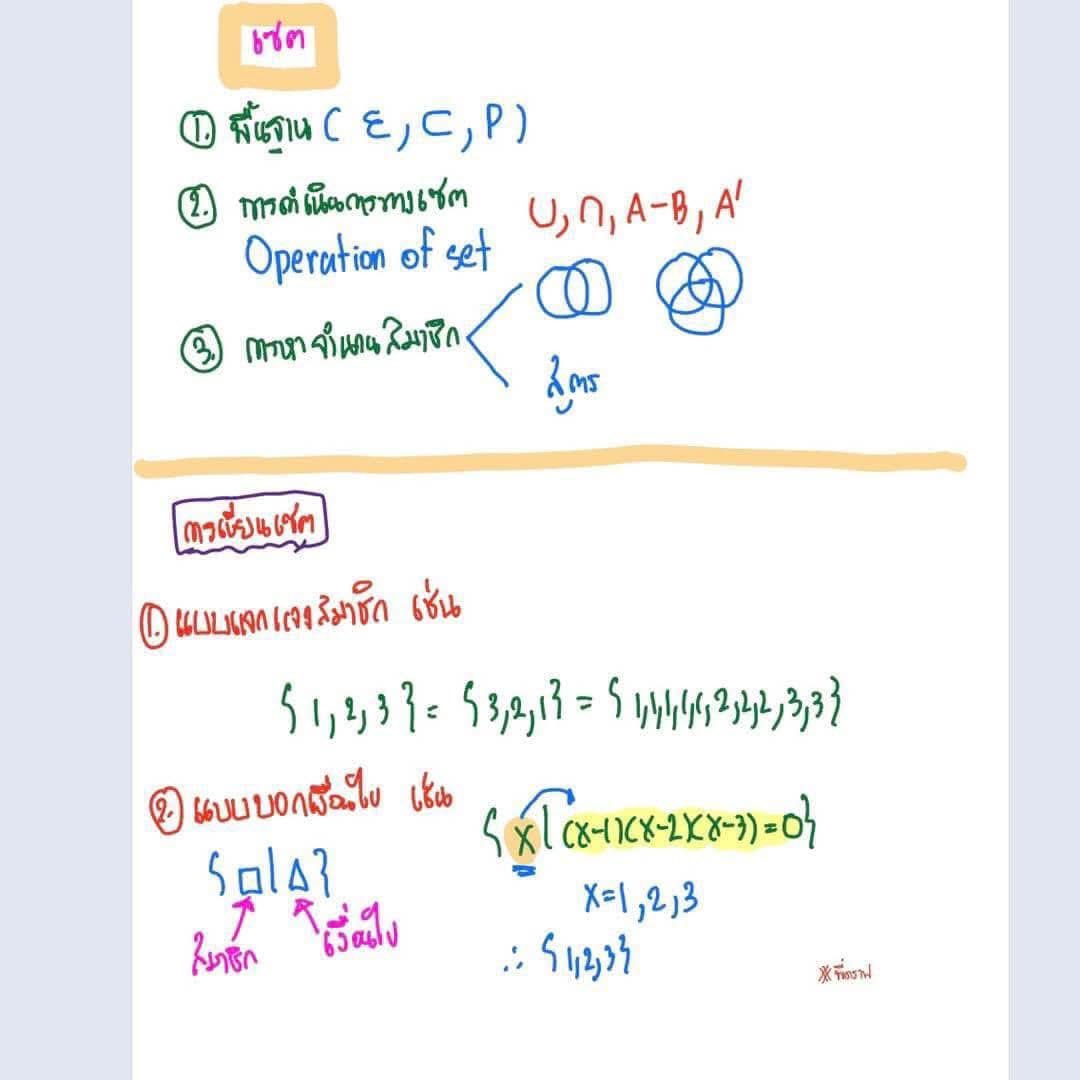 เซต
① พื้นฐาน ( ε, ⊂, P )
② การดำเนินการทางเซต ∪, ∩, A-B, A'
Operation of set
③ การหาจำนวนสมาชิก
สูตร
การเขียนเซต
① แบบแจกแจงสมาชิก เช่น
{ 1, 2, 3 } = { 3, 2, 1 } = { 1,1,1,1,1,2,2,2,3,3 }
② แบบบอกเงื่อนไข เช่น
{ x | (x-1)(x-2)(x-3) = 0 }
{ □ | △ }
x = 1, 2, 3
สมาชิก เงื่อนไข
∴ { 1,2,3 }